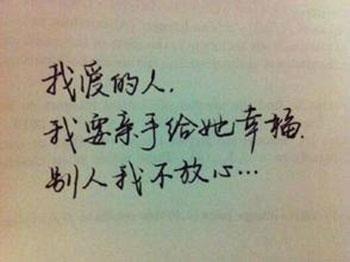 我爱的人.
我要亲手给她幸福.
别人我不放心…